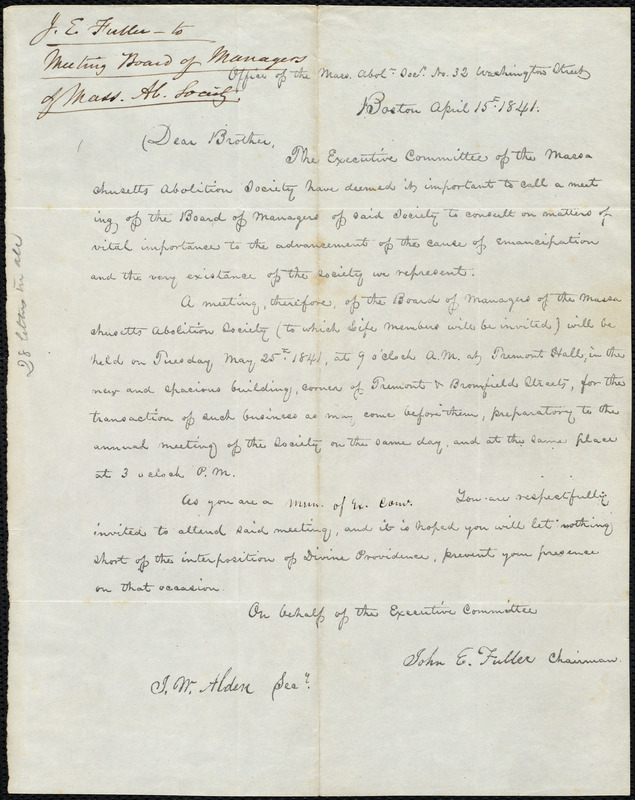 J. E. Fuller - to
Meeting Board of Managers
of Mass. Ab. Society.
Office of the Mass. Aboln. Socy. No. 32 Washington Street
Boston April 15th 1841.
Dear Brother,
The Executive Committee of the Massa
chusetts Abolition Society have deemed it important to call a meet
ing of the Board of Managers of said Society to consult on matters of
vital importance to the advancement of the cause of emancipation
and the very existance of the society we represent.
A meeting, therefore, of the Board of Managers of the Massa
chusetts Abolition Society (to which Life members will be invited) will be
held on Tuesday May 25th 1841, at 9 o'clock A.M. at Tremont Hall, in the
new and spacious building, corner of Tremont & Bromfield Streets, for the
transaction of such business as may come before them, preparatory to the
annual meeting of the Society on the same day, and at the same place
at 3 oclock P.M.
As you are a Mem. of Ex. Com. You are respectfully
invited to attend said meeting, and it is hoped you will let nothing
short of the interposition of Divine Providence, prevent your presence
on that occasion.
On behalf of the Executive Committee
John E. Fuller Chairman.
J. W. Alden Secy.
28 letters in all